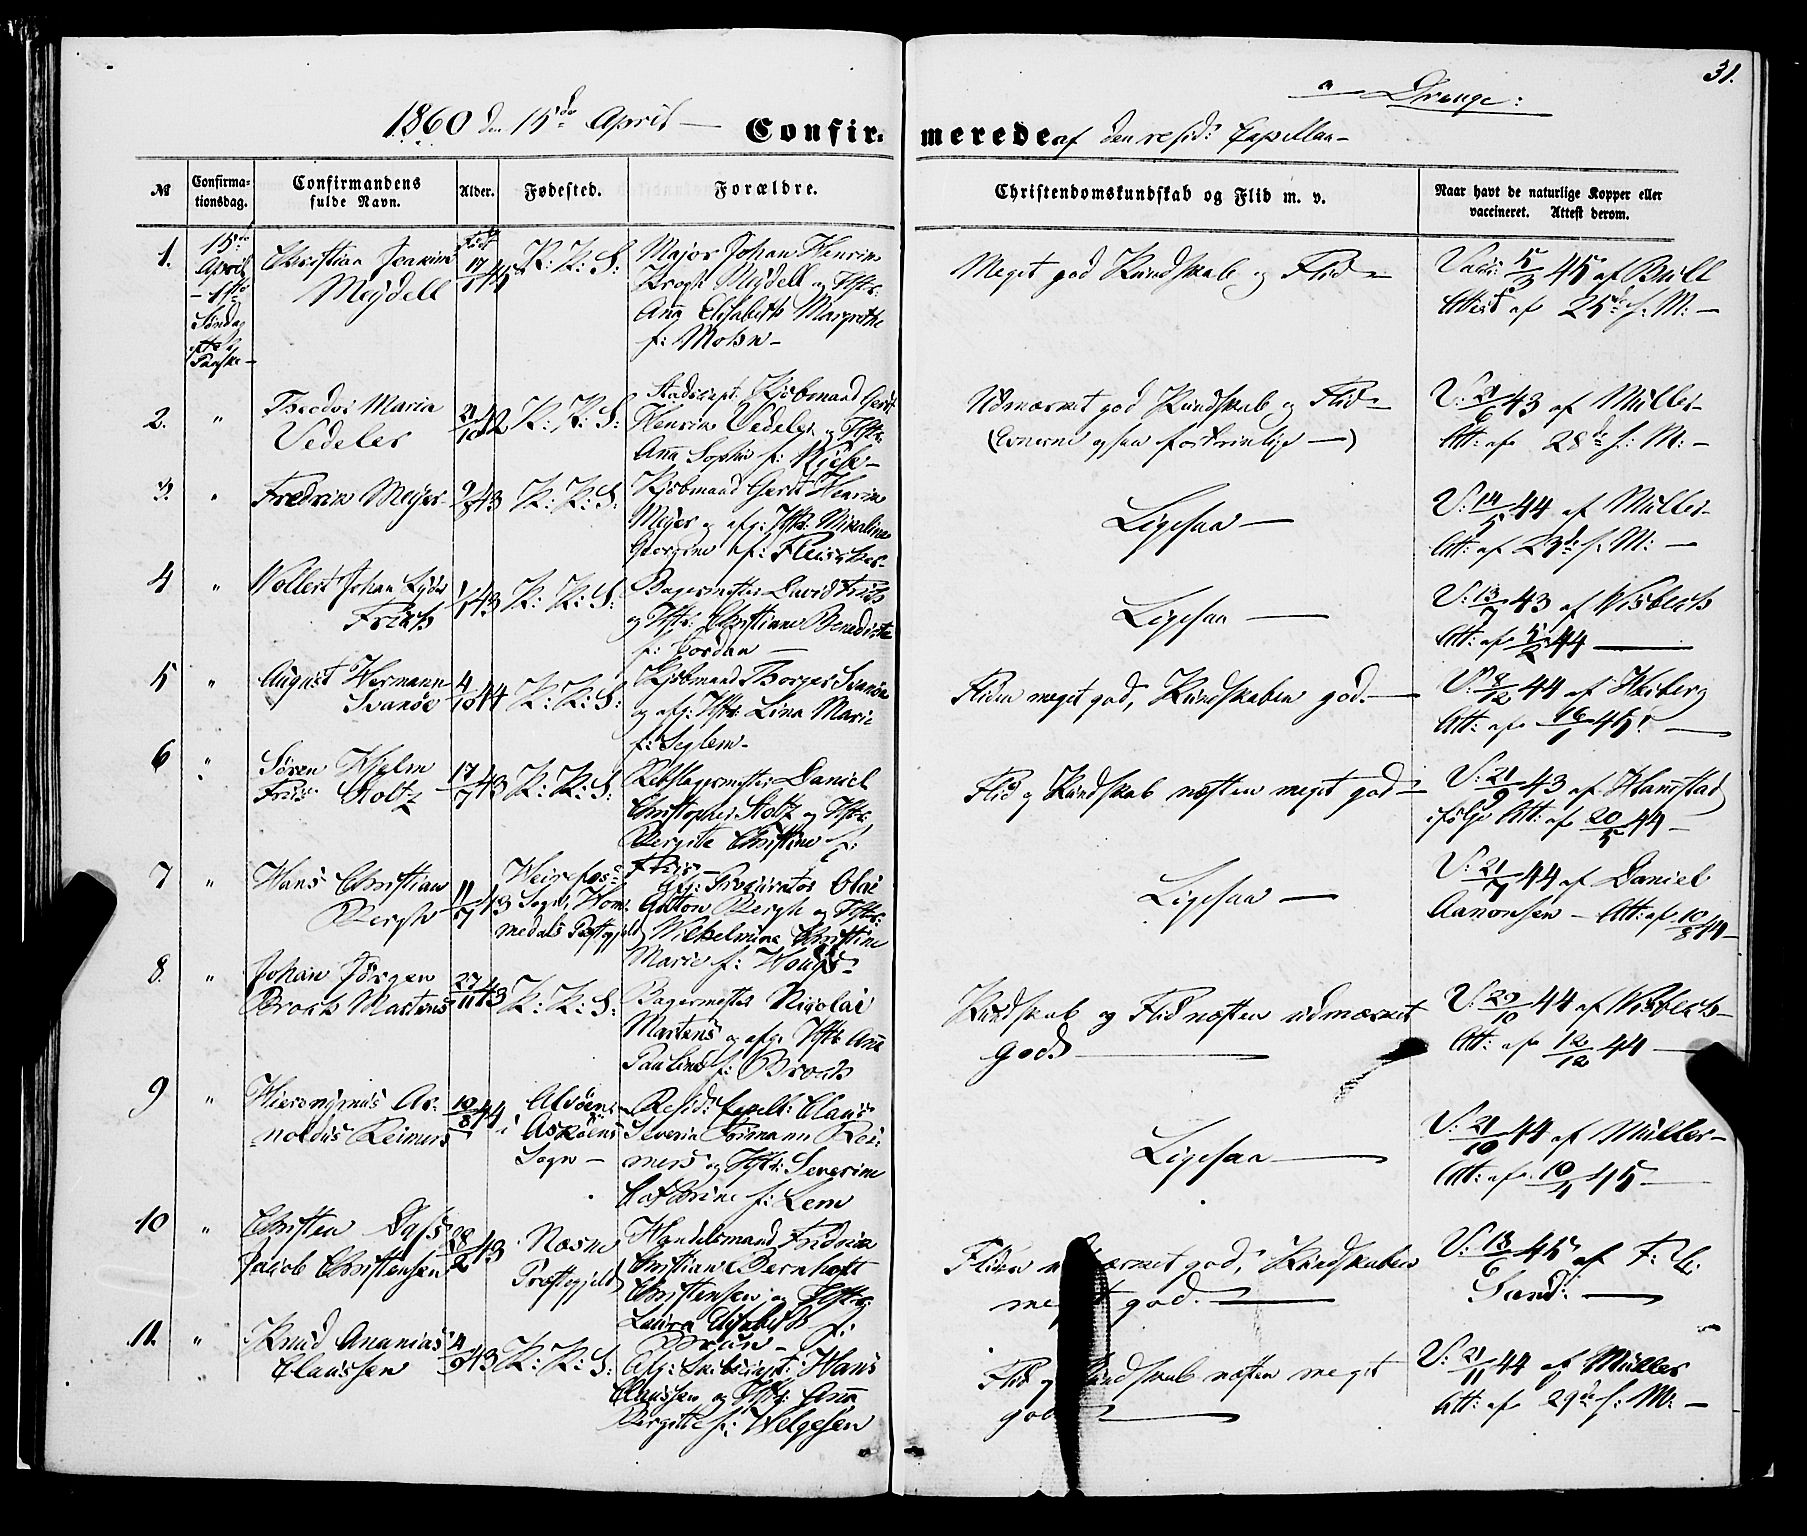 31.
Drenge:
1860 d. 15de April — Confir- merede af den resid: Capellan —
№
Confirma-
tionsdag.
Confirmandens
fulde Navn.
Alder.
Fødested.
Forældre.
Christendomskundskab og Flid m. v.
Naar havt de naturlige Kopper eller
vaccineret. Attest derom.
1.
15de
April
Søndag
Paaske —
Christian Joakim
Meydell
født
17/1 45
K: K: S:
Major Johan Henrik
Krogh Meydell og Hstr:
Anna Elisabeth Margrethe
f: Mohn —
Meget god Kundskab og Flid —
Vacc: 5/3 45 af Bull
Attest af 25de s: M: —
2.
"
Theodor Maria
Vedeler
21/10 42
K: K: S:
Stadscapt: Kjøbmand Gerdt
Henrik Vedeler og Hstr:
Anna Sophie f: Kjese —
Udmærket god Kundskab og Flid —
(Evnerne ogsaa fortrinlige —)
V: 21/6 43 af Müller —
Att: af 28de s: M: —
3.
"
Fredrik Meyer
9/8 43
K: K: S:
Kjøbmand Gerdt Henrik
Meyer og afg: Hstr: Mikaline
Georgine f: Fleischer —
Ligesaa —
V: 14/5 44 af Müller —
Att: af 23de s: M: —
4
"
Wollert Johan Lyder
Friis
1/1 43
K: K: S:
Bagermester David Friis
og Hstr: Christiane Benedicte
f: Cordan —
Ligesaa —
V: 13/7 43 af Wisbech
Att: af 5/2 44 —
5
"
August Hermann
Svanöe
4/10 44
K: K: S:
Kjöbmand Thorger Svanöe
og afg: Hstr: Lina Marie
f: Seglem —
Fliden meget god, Kundskaben god. —
V: 8/12 44 af Wiberg
Att: af 16/1 45 —
6
"
Sören Hjelm
Friis Stoltz
17/7 43
K: K: S:
Rebslagermester Daniel
Christopher Stoltz og Hstr:
Bergitte Christine f:
Friis —
Flid og Kundskab næsten meget god —
V: 21/9 43 af Hamstad
ifølge Att: af 20/5 44 —
7
"
Hans Christian
Bergh
11/7 43
Sogn, Hom-
medals Præstegjeld
Afg: Procurator Olai
Anton Bergh og Hstr:
Wilhelmine Christine
Marie f: Houg —
Ligesaa —
V: 21/7 44 af Daniel
Aanonsen — Att: af 10/8 44 —
8.
"
Johan Jörgen
Broch Martens
27/11 43
K: K: S:
Bagermester Nicolai
Martens og afg: Hstr: Anne
Pauline f: Broch
Kundskab og Flid næsten udmærket
god. —
V: 29/10 44 af Wisbech —
Att: af 12/12 44 —
9
"
Hieronymus Ar-
noldus Reimers
10/8 44
Alvöen
i Askøens
Sogn —
Resid: Capell: Claus
Severin Friman Rei-
mers og Hstr: Severine
Cathrine f: Lem
Ligesaa —
V: 21/10 44 af Müller —
Att: af 10/4 45 —
10
"
Christen Dass
Jacob Christensen
28/2 43
Næsne
Præstegjeld
Handelsmand Fredrik
Christian Bernhoft
Christensen og Hstr:
Laura Elisabeth f:
Brun —
Fliden udmærket god, Kundskaben
meget god. —
V: 13/6 45 af F: C:
Sand: —
11.
"
Knud Ananias
Claussen
4/9 43
K: K: S:
Afg: Skibscapt: Hans
Claussen og Hstr: Anna
Bergitte f: Helgesen
Flid og Kundskab næsten meget
god —
V: 21/11 44 af Müller
Att: af 29de s: M: —